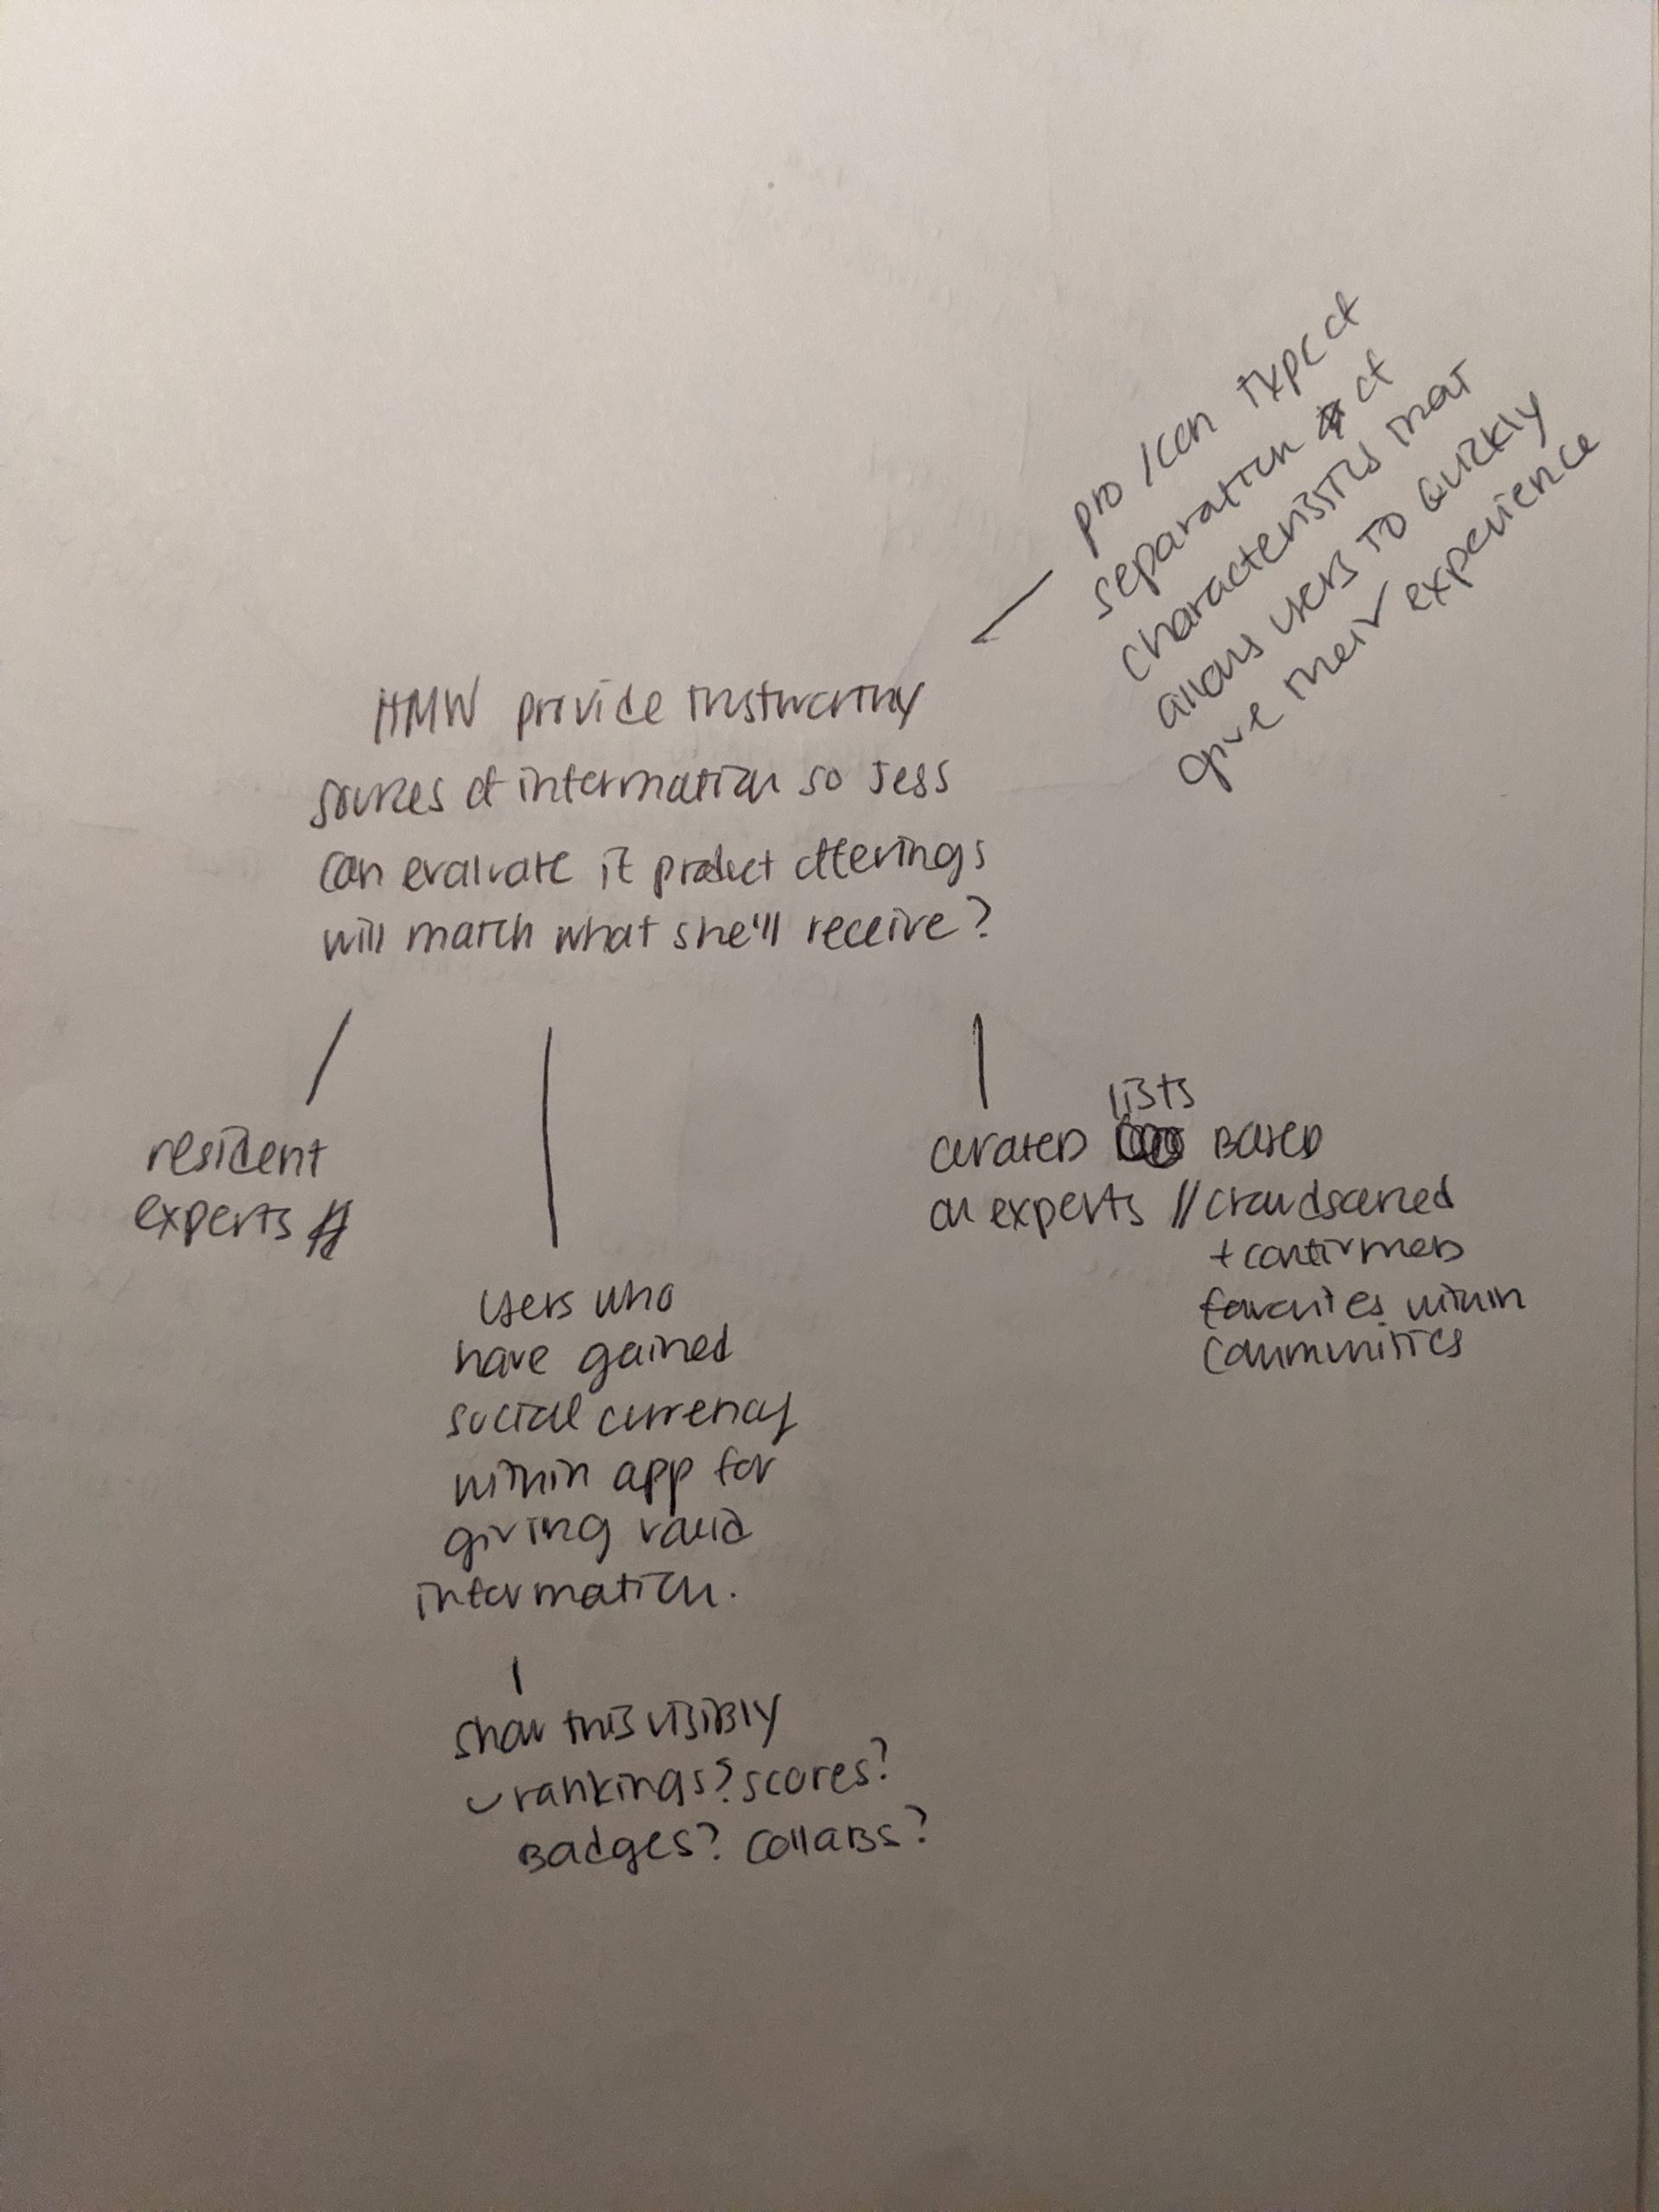 pro/con type of
separation of
characteristics that
allows users to quickly
give their experience
HMW provide trustworthy
sources of information so Jess
can evaluate if product offerings
will match what she'll receive?
resident
experts
users who
have gained
social currency
within app for
giving valid
information.
show this visibly
rankings? scores?
Badges? collabs?
lists
curated based
on experts // crowdsourced
+ confirmed
favorites within
communities